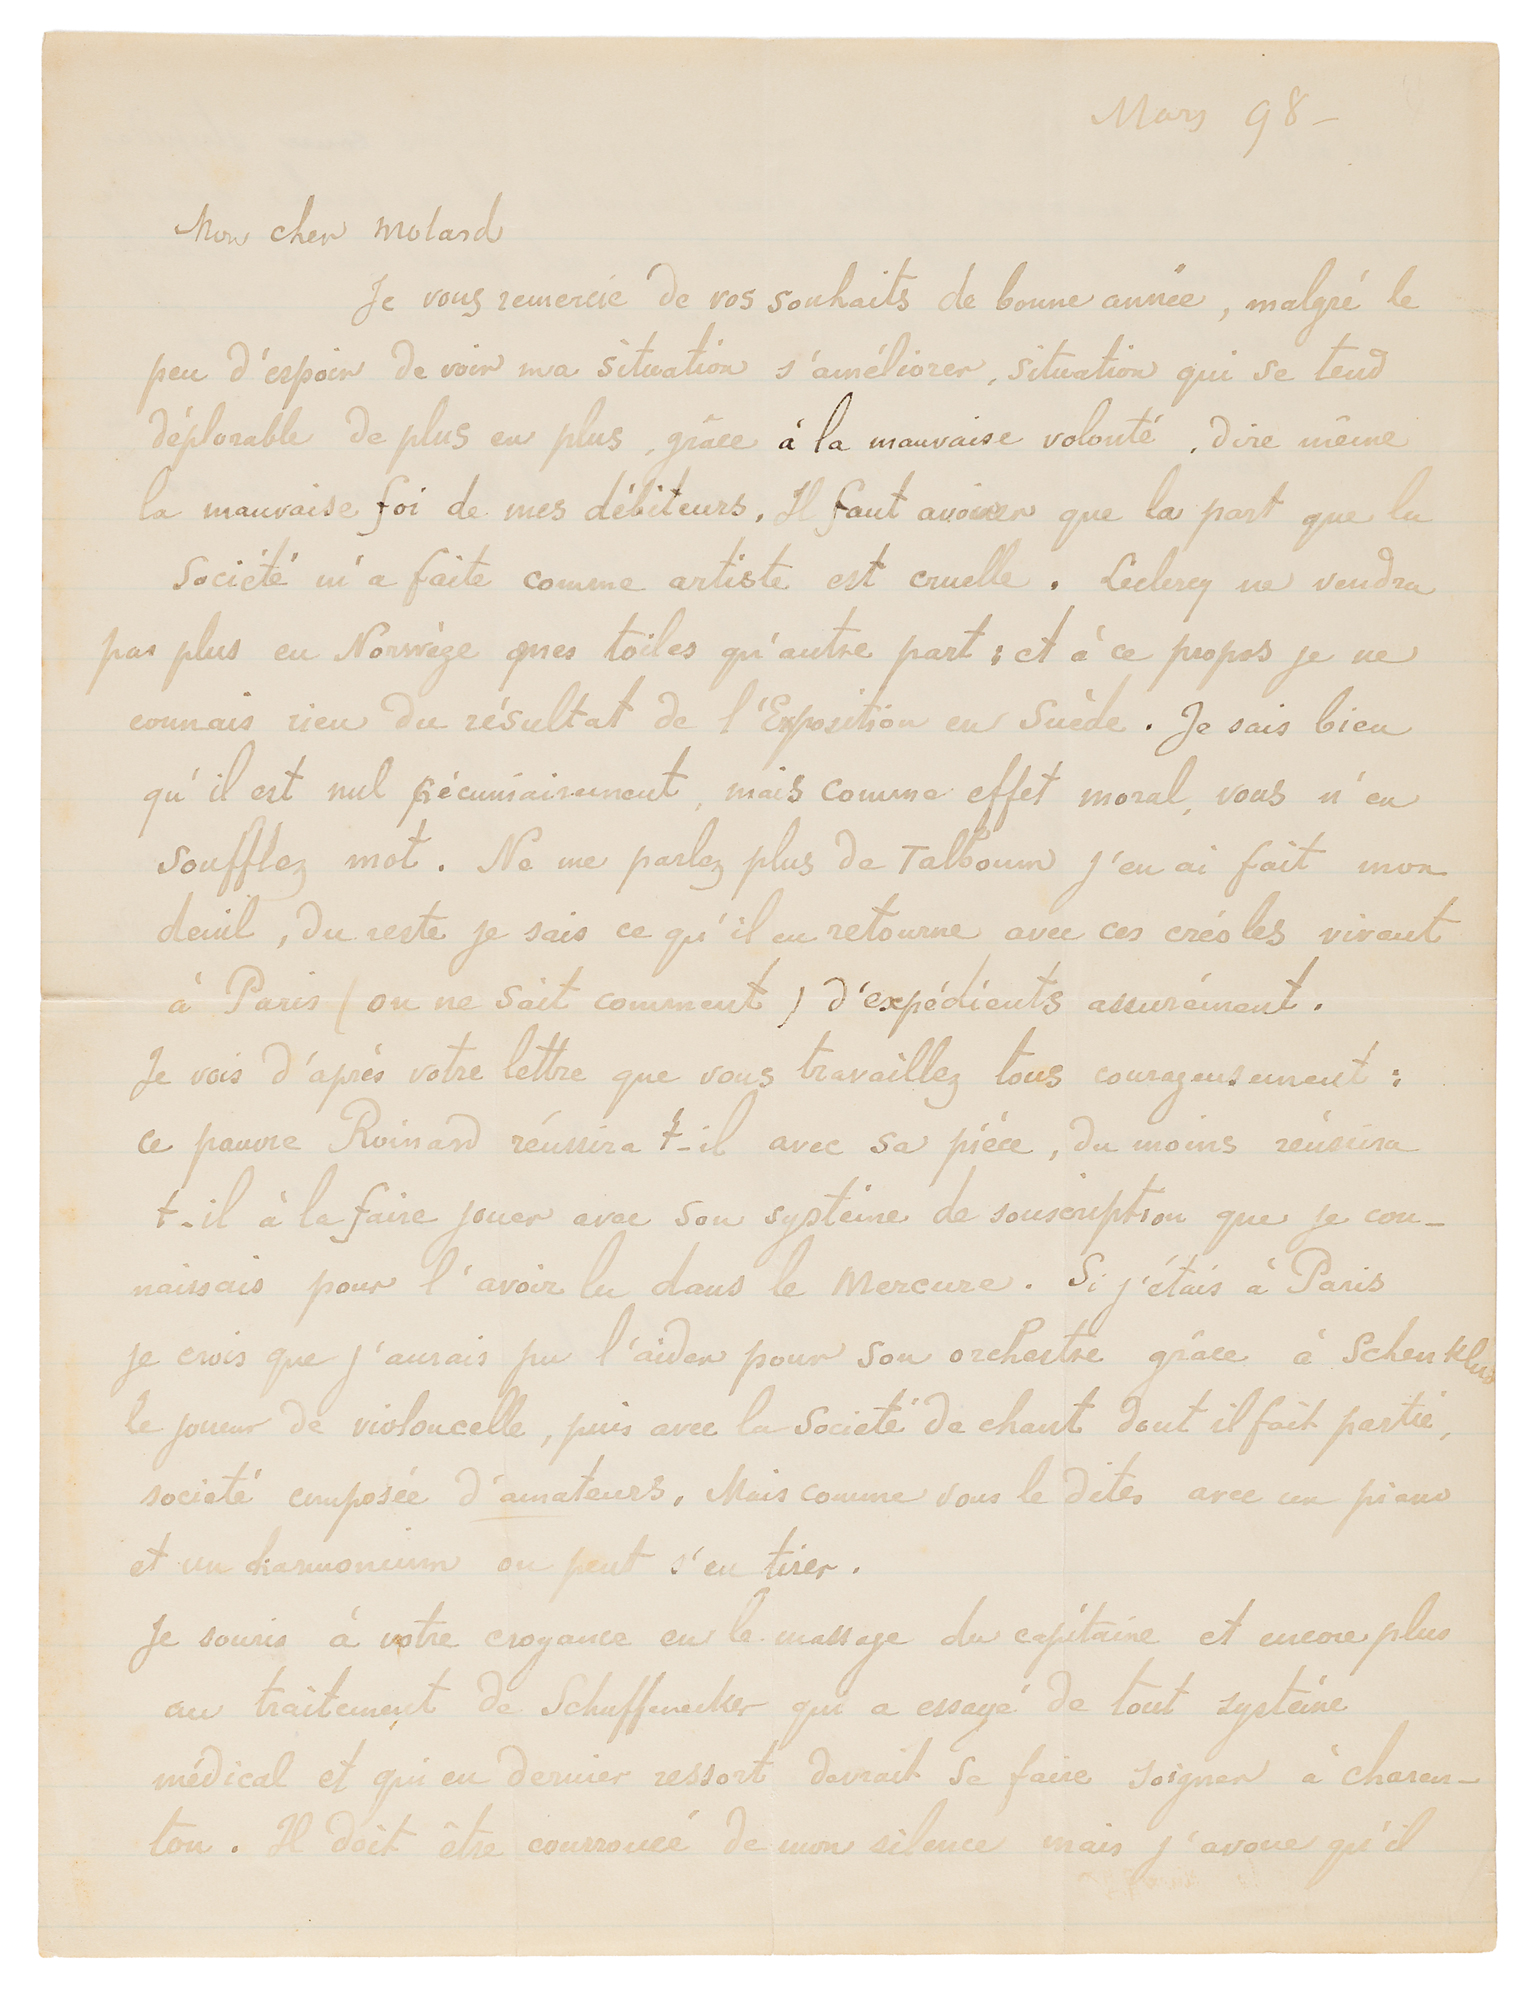 Mars 98 -
Mon cher Molard
Je vous remercie de vos souhaits de bonne année, malgré le
peu d'espoir de voir ma situation s'améliorer, situation qui se tend
déplorable de plus en plus, grâce à la mauvaise volonté, dire même
la mauvaise foi de mes débiteurs. Il faut avouer que la part que la
Société m'a faite comme artiste est cruelle. Leclercq ne vendra
pas plus en Norwège mes toiles qu'autre part; et à ce propos je ne
connais rien du résultat de l'Exposition en Suède. Je sais bien
qu'il est nul pécuniairement, mais comme effet moral, vous n'en
soufflez mot. Ne me parlez plus de Talboum j'en ai fait mon
deuil, du reste je sais ce qu'il en retourne avec ces créoles vivant
à Paris (on ne sait comment) d'expédients assurément.
Je vois d'après votre lettre que vous travaillez tous courageusement:
ce pauvre Roinard réussira t-il avec sa pièce, du moins réussira
t-il à la faire jouer avec son système de souscription que je con-
naissais pour l'avoir lu dans le Mercure. Si j'étais à Paris
je crois que j'aurais pu l'aider pour son orchestre grâce à
le joueur de violoncelle, puis avec la Société de chant dont il fait partie,
société composée d'amateurs. Mais comme vous le dites avec un piano
et un harmonium on peut s'en tirer.
Je souris à votre croyance en le massage du capitaine et encore plus
au traitement de Schuffenecker qui a essayé de tout système
médical et qui en dernier ressort devrait se faire soigner à charen-
ton. Il doit être courroucé de mon silence mais j'avoue qu'il